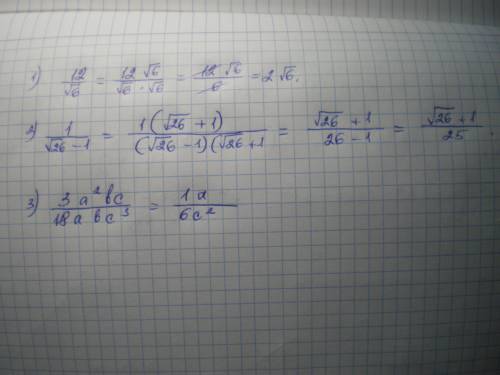 1) 12/√6 = 12√6/√6·√6 = 12√6/6 = 2√6.
2) 1/√26-1 = 1(√26+1)/(√26-1)(√26+1 = √26+1/26-1 = √26+1/25
3) 3a²bc/18abc³ = 1a/6c²